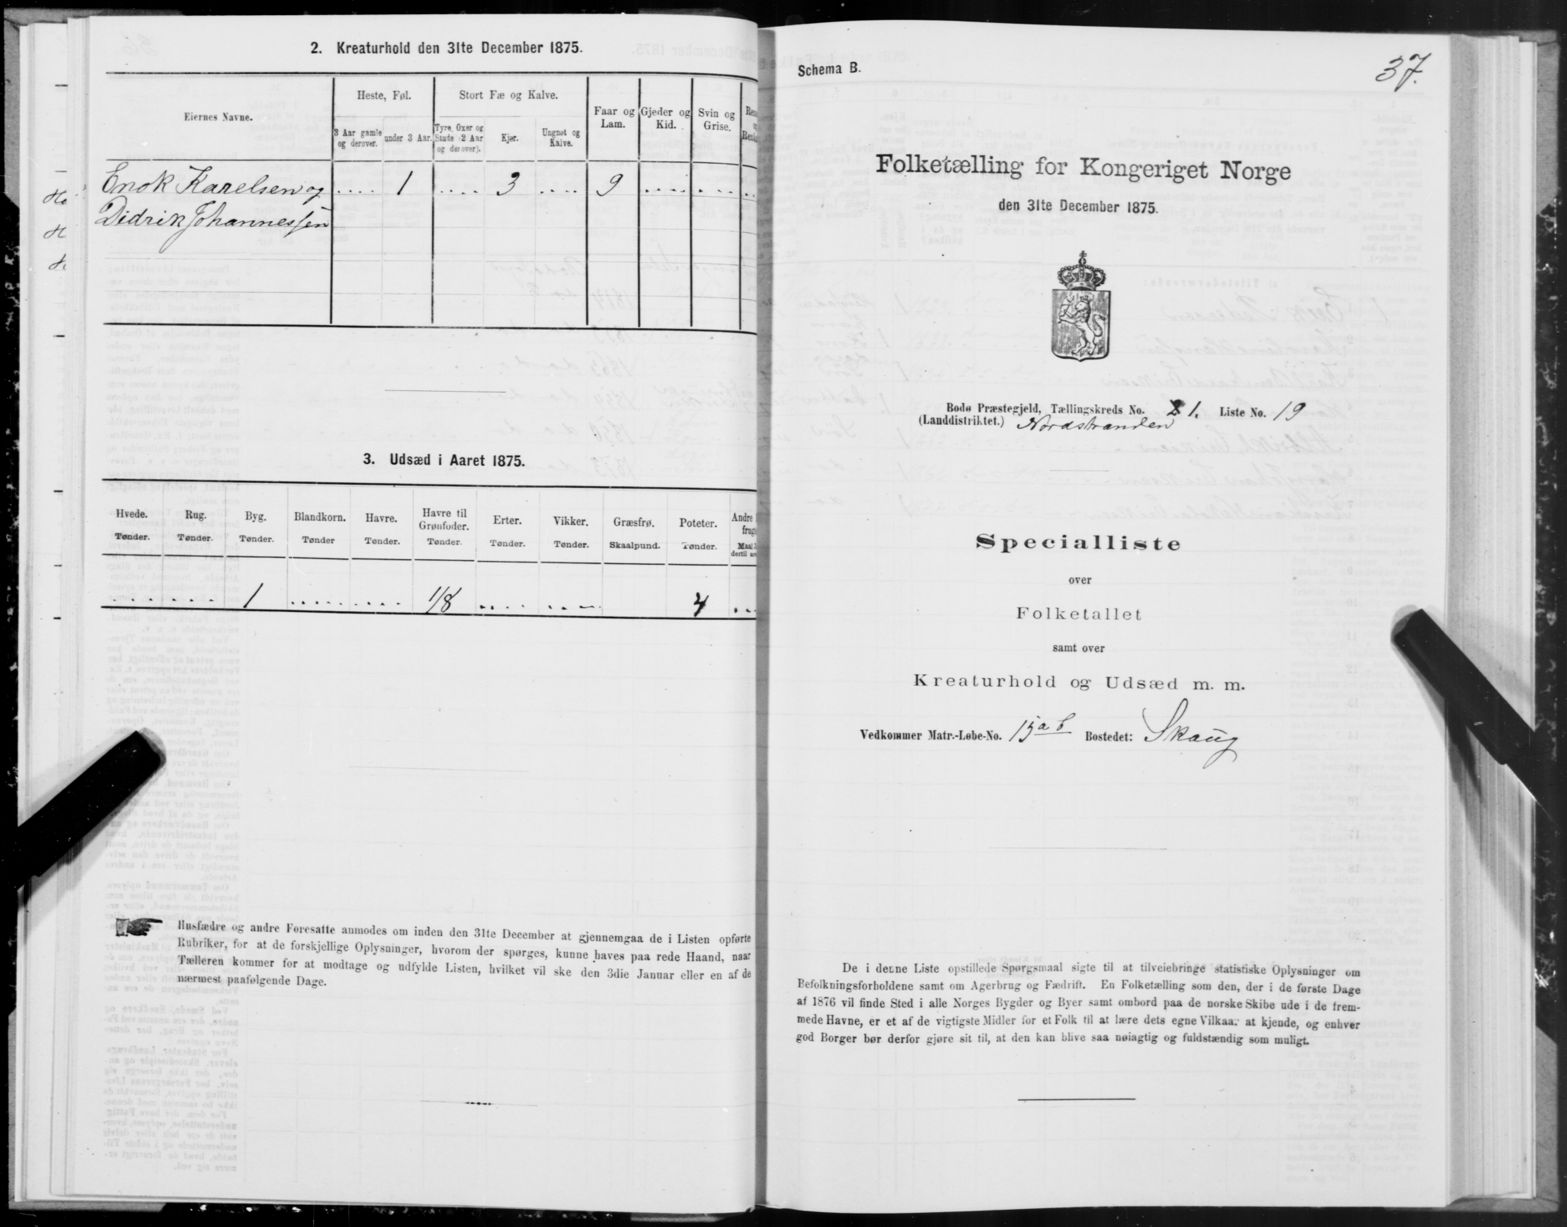 2. Kreaturhold den 31te December 1875.
Eiernes Navne.
Heste, Føl.
Stort Fæ og Kalve.
Faar og Lam.
Gjeder og Kid.
Svin og Grise.
3 Aar gamle og derover.
under 3 Aar.
Tyre, Oxer og Stude (2 Aar og derover).
Kjør.
Ungnøt og Kalve.
Enok Karelsen og ..... 1 ..... 3 ..... 9 ..... ..... ...
Didrik Johannessen
3. Udsæd i Aaret 1875.
Hvede. Rug. Byg. Blandkorn. Havre. Havre til Grønfoder. Erter. Vikker. Græsfrø. Poteter. Andre
Tønder. Tønder. Tønder. Tønder Tønder. Tønder. Tønder. Tønder. Skaalpund. Tønder.
..... ..... 1 ..... ..... 1/8 ..... ..... 4 ...
Husfædre og andre Foresatte anmodes om inden den 31te December at gjennemgaa de i Listen opførte
Rubriker, for at de forskjellige Oplysninger, hvorom der spørges, kunne haves paa rede Haand, naar
Tælleren kommer for at modtage og udfylde Listen, hvilket vil ske den 3die Januar eller en af de
nærmest paafølgende Dage.
Schema B.
37.
Folketælling for Kongeriget Norge
den 31te December 1875.
Bodø Præstegjeld, Tællingskreds No. 1. Liste No. 19
(Landdistriktet.) Nordstranden
Specialliste
over
Folketallet
samt over
Kreaturhold og Udsæd m. m.
Vedkommer Matr.-Løbe-No. 15 a b Bostedet: Skaug
De i denne Liste opstillede Spørgsmaal sigte til at tilveiebringe statistiske Oplysninger om
Befolkningsforholdene samt om Agerbrug og Fædrift. En Folketælling som den, der i de første Dage
af 1876 vil finde Sted i alle Norges Bygder og Byer samt ombord paa de norske Skibe ude i de frem-
mede Havne, er et af de vigtigste Midler for et Folk til at lære dets egne Vilkaar at kjende, og enhver
god Borger bør derfor gjøre sit til, at den kan blive saa nøiagtig og fuldstændig som muligt.